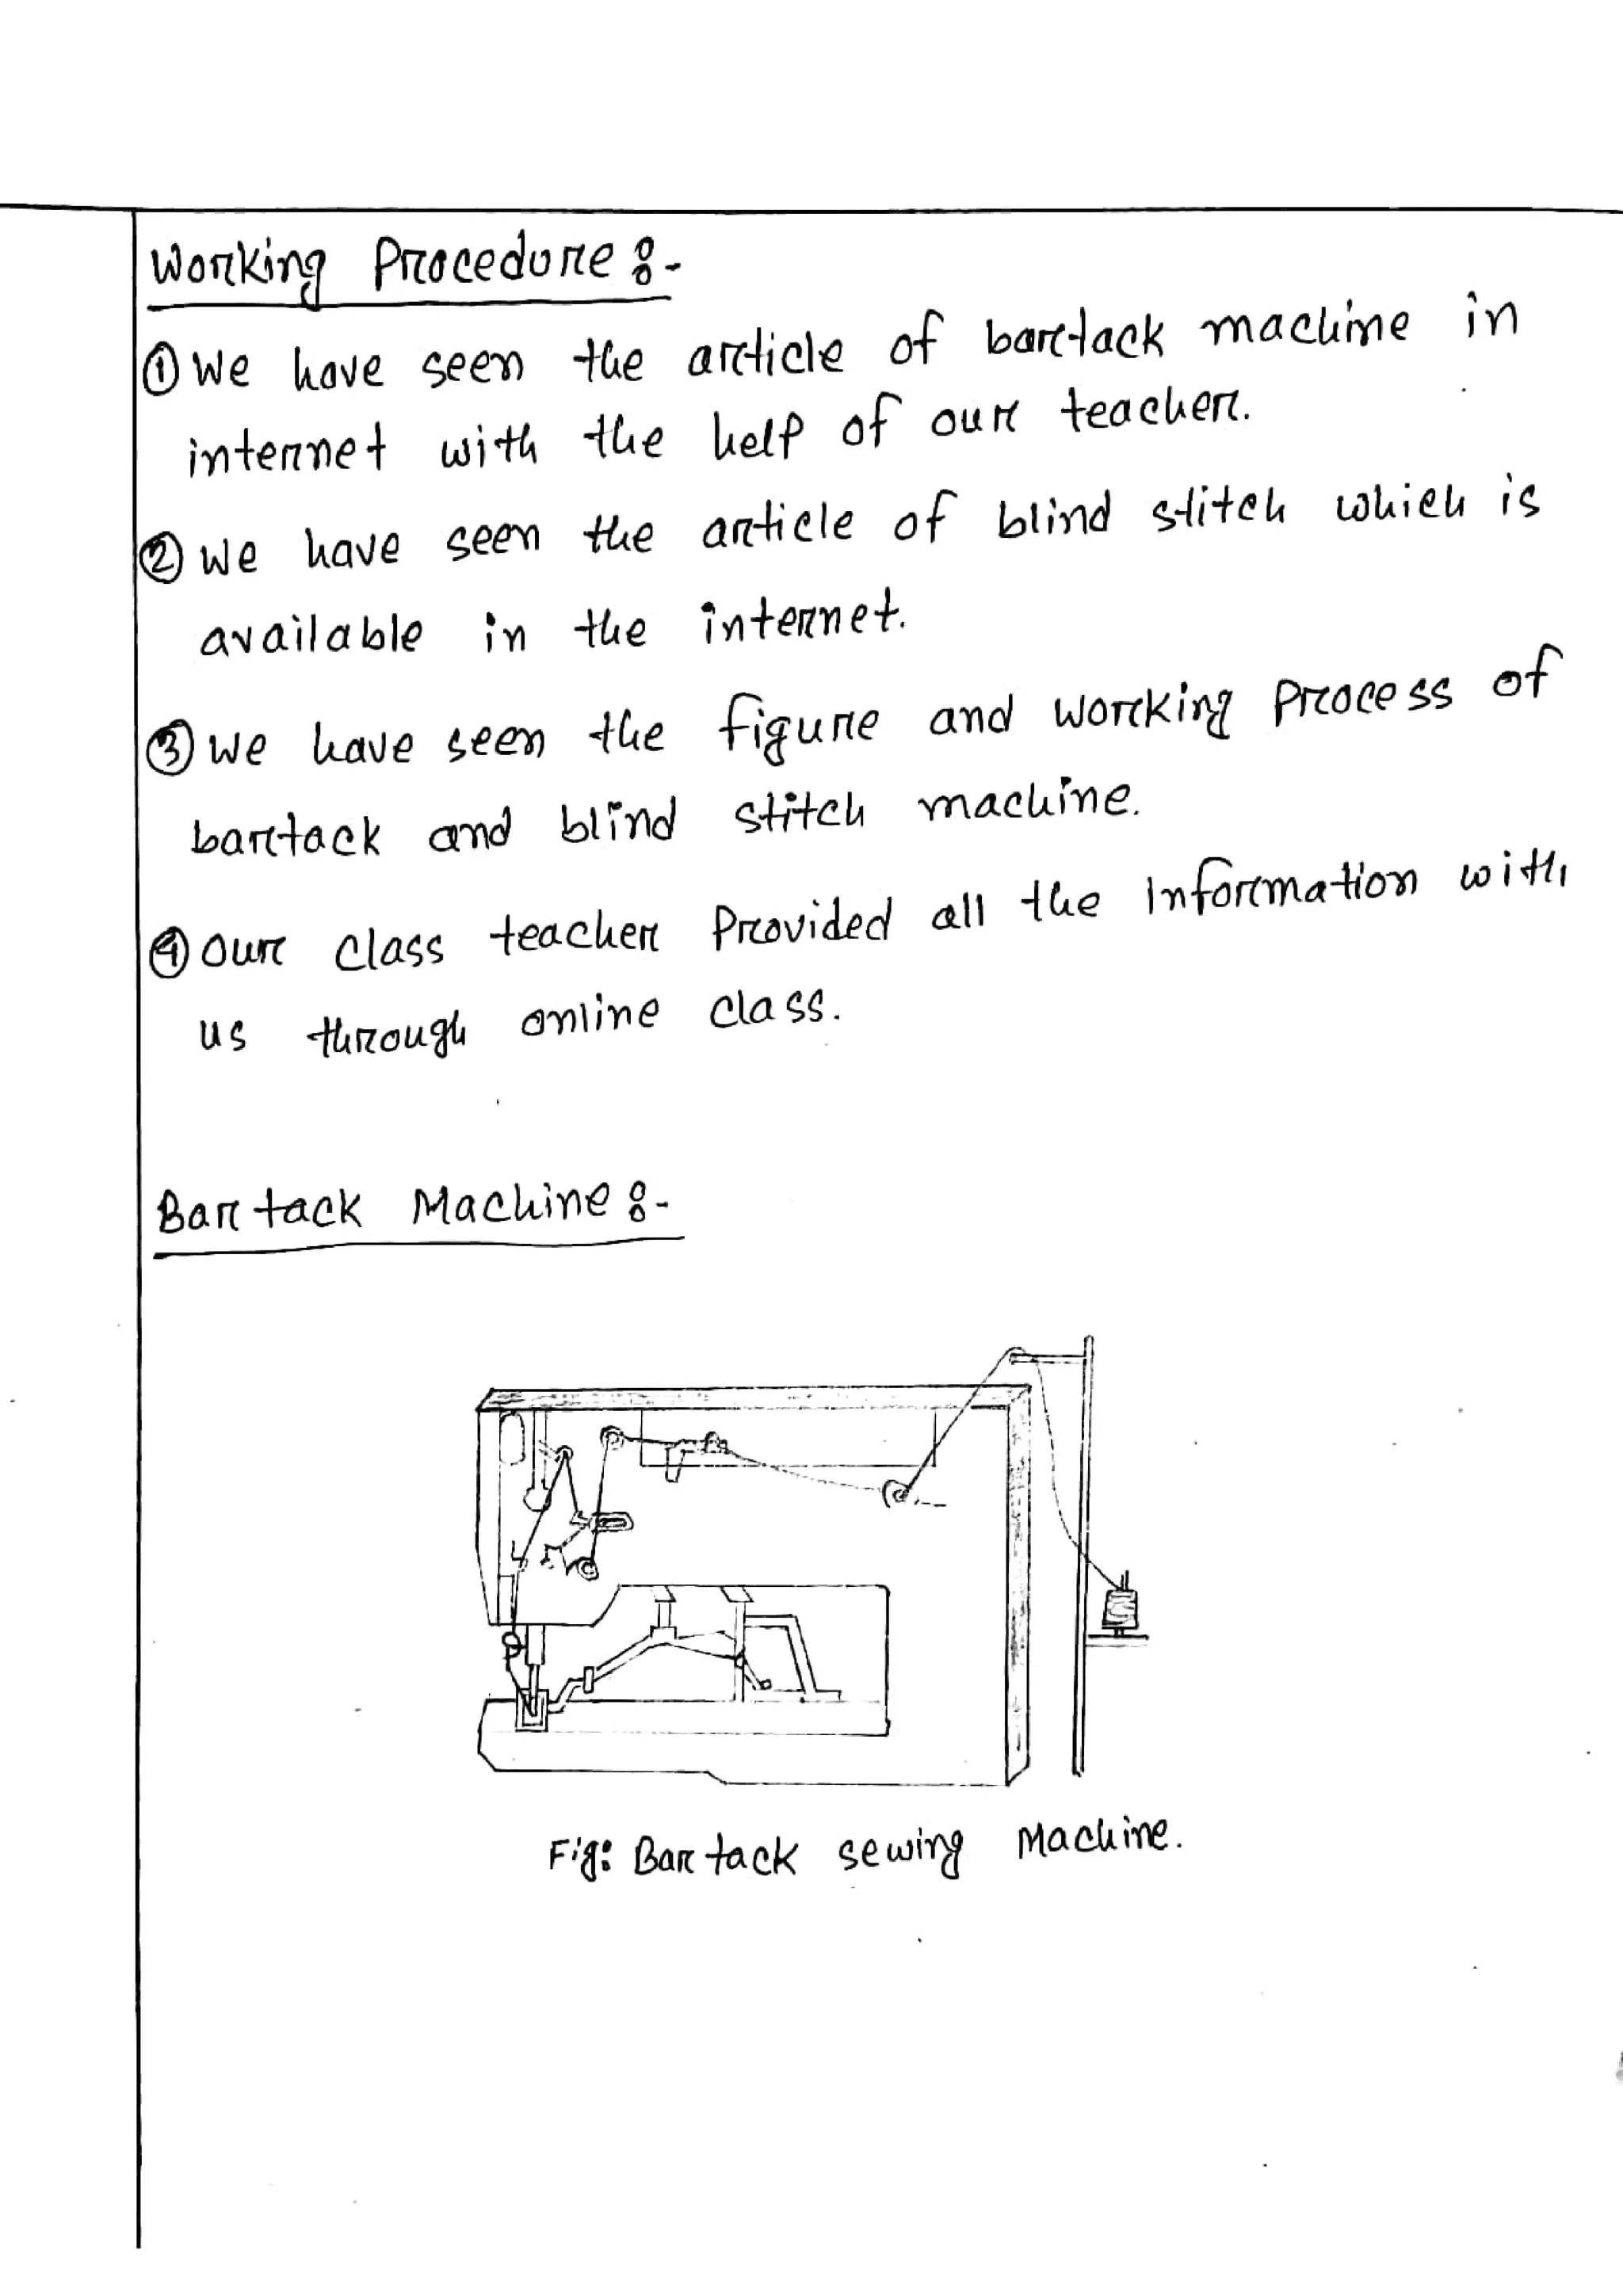 Working Procedure :-
① We have seen the article of bartack machine in
internet with the help of our teacher.
② We have seen the article of blind stitch which is
available in the internet.
③ We have seen the figure and working Process of
bartack and blind stitch machine.
④ Our class teacher Provided all the Information with
us through online class.
Bar tack Machine :-
Fig: Bar tack sewing Machine.